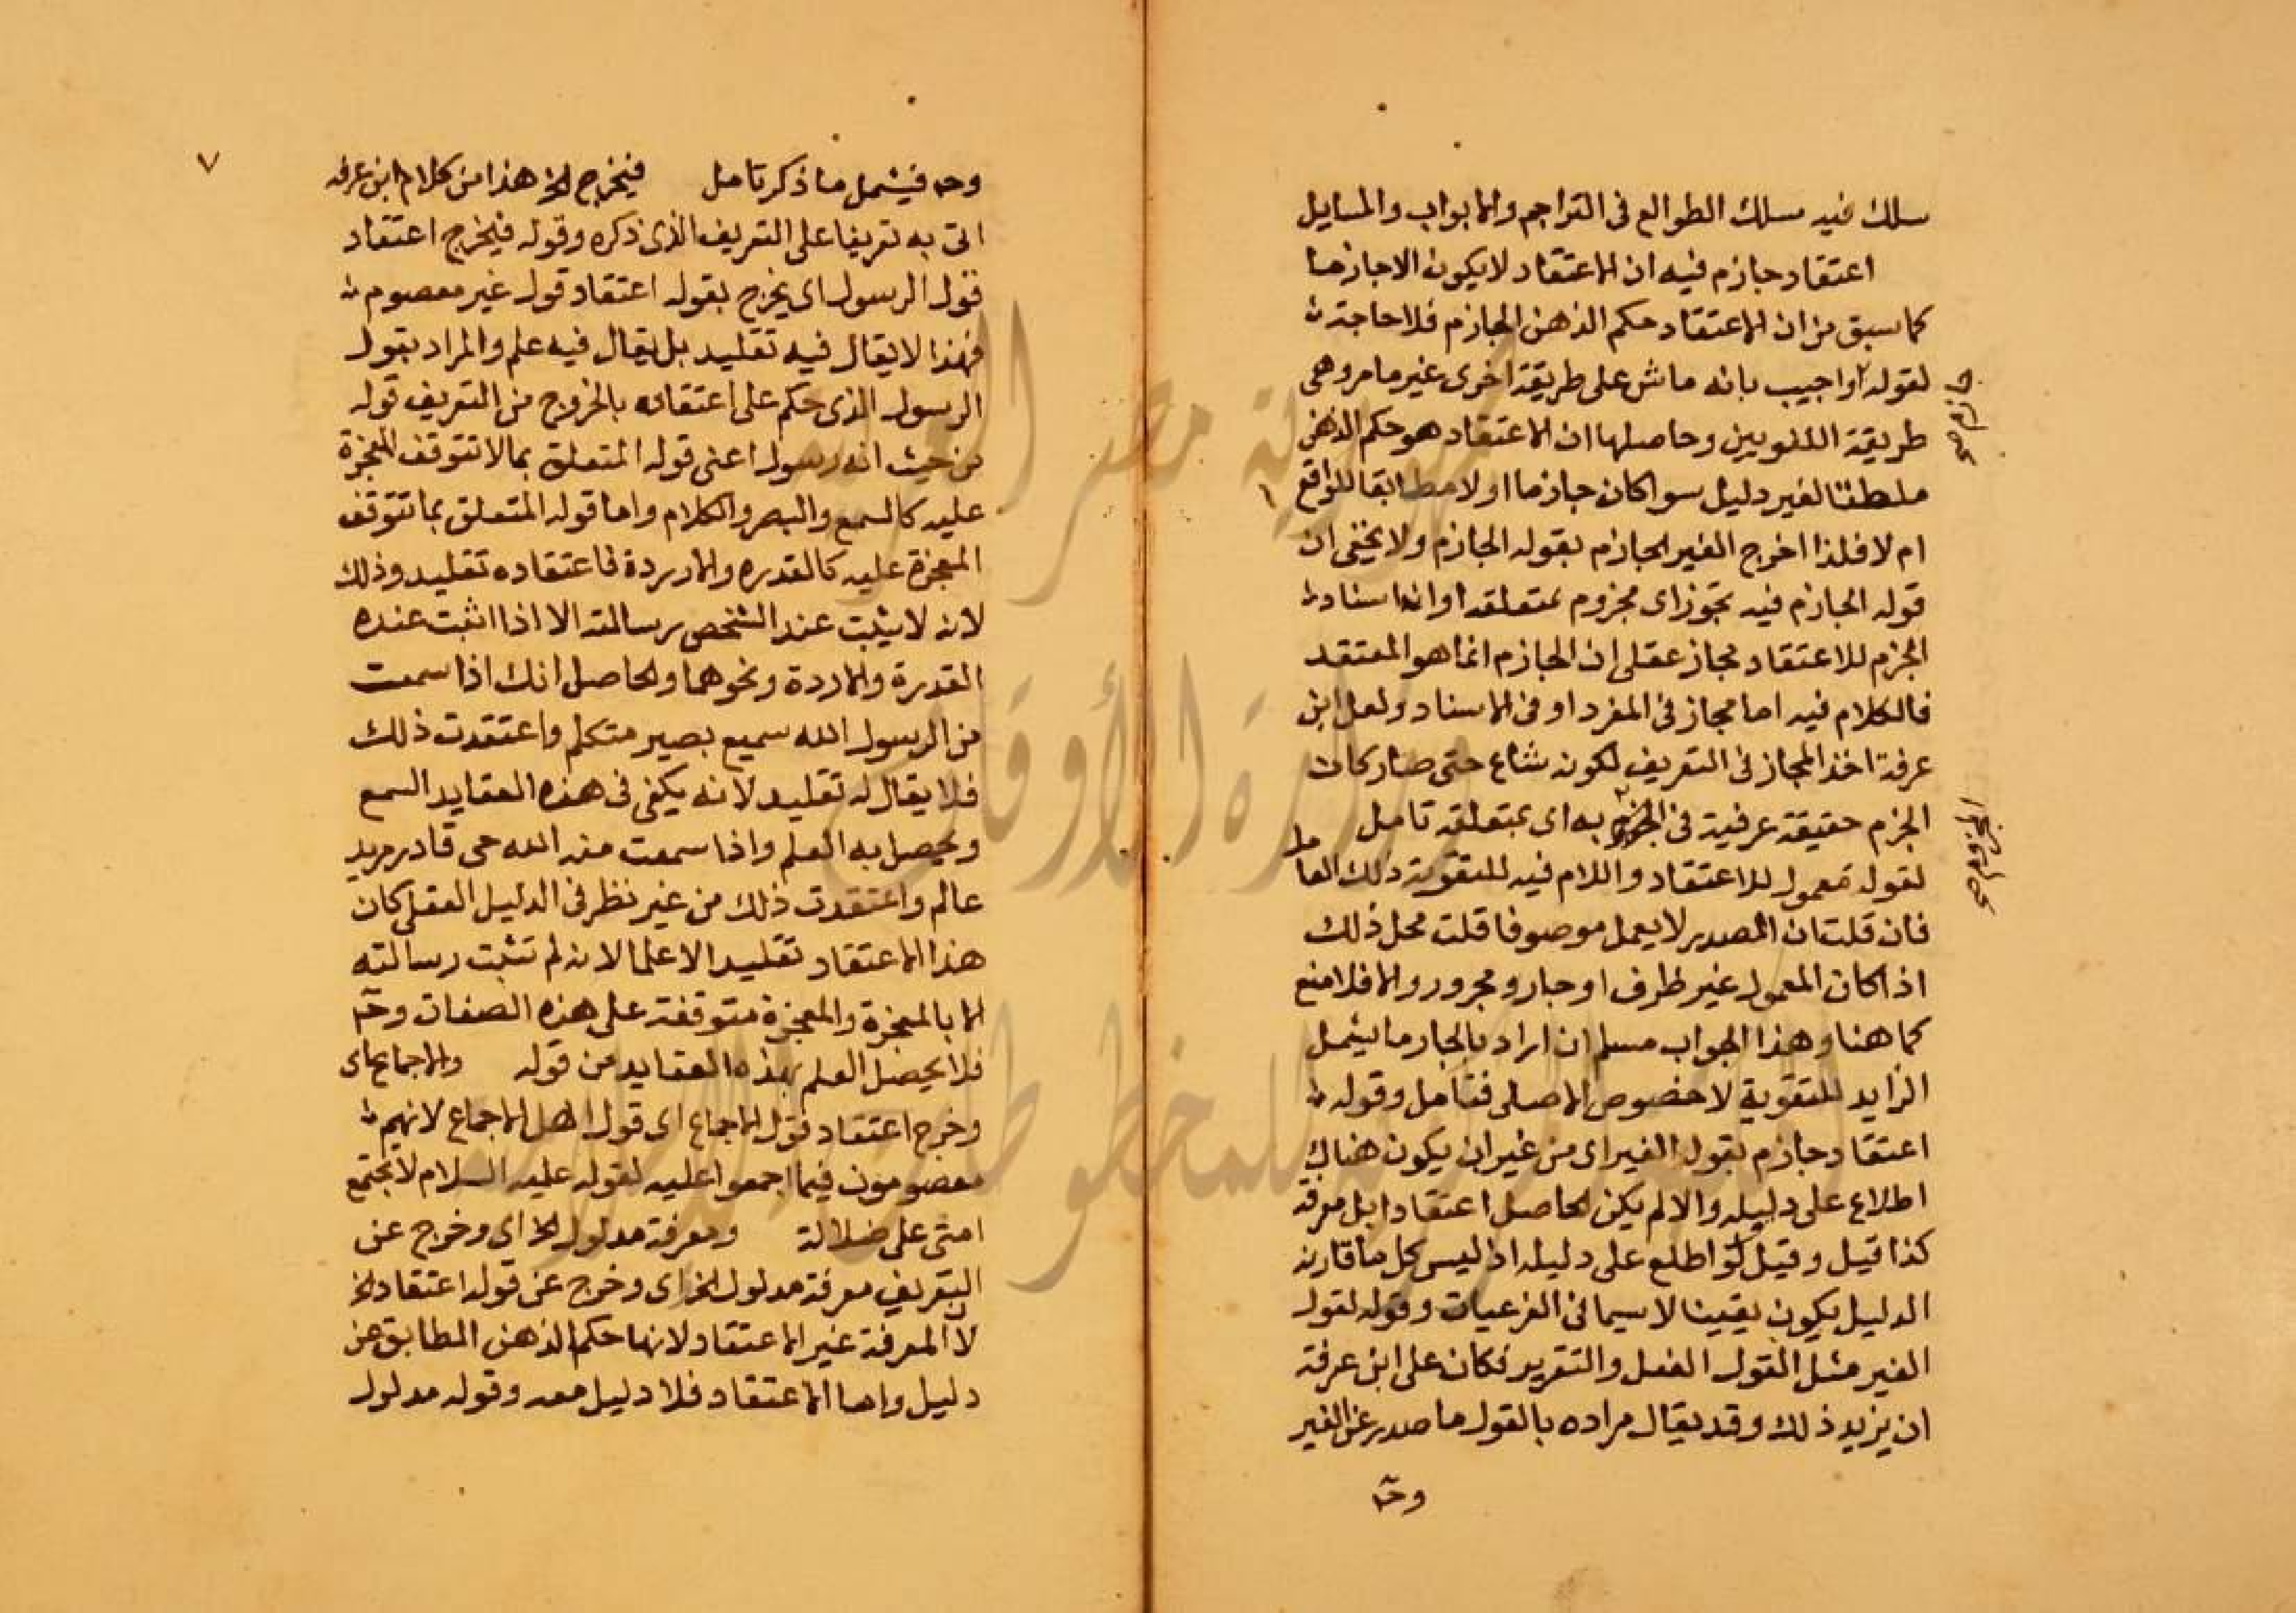 سلك فيه مسلك الطوالع فى التراجم والابواب والمسايل
اعتقاد جازم فيه ان الاعتقاد لا يكون الاجازما
كما سبق من ان الاعتقاد حكم الذهن الجازم فلا حاجة
لقوله واجيب بانه ماش على طريقة اخرى غير ما مر وهى
جازم صح
طريقة اللغويين وحاصلها ان الاعتقاد هو حكم الذهن
مطلقا لغير دليل سوا كان جازما او لا مطابقا للواقع
ام لا فلذا اخرج الغير الجازم بقوله الجازم ولا يخفى ان
قوله الجازم فيه تجوز اى مجزوم بمتعلقه او ان اسناد
الجزم للاعتقاد مجاز عقلى ان الجازم انما هو المعتقد
فالكلام فيه اما مجاز فى المفرد او فى الاسناد ولعل ابن
عرفة اخذ المجاز فى التعريف لكونه شاع حتى صار كان
الجزم حقيقة عرفية فى المجزوم به اى بمتعلقه تامل
المجزوم صح
لقوله معمول للاعتقاد واللام فيه للتقوية ذلك العامل
فان قلت ان المصدر لا يعمل موصوفا قلت محل ذلك
اذا كان المعمول غير ظرف او جار ومجرور والا فلا منع
كما هنا وهذا الجواب مسلم ان اراد بالجار ما يشمل
الزايد للتقوية لا خصوص الاصلى فتامل وقوله
اعتقاد جازم بقول الغير اى من غير ان يكون هناك
اطلاع على دليله والا لم يكن الحاصل اعتقادا بل معرفة
كذا قيل وقيل لو اطلع على دليله اذ ليس كل ما قارنه
الدليل يكون يقينا لا سيما فى الفرعيات وقوله لقول
الغير مثل القول الفعل والتقرير فكان على ابن عرفة
ان يزيد ذلك وقد يقال مراده بالقول ما صدر عن الغير
وحـ
٧
وحـ فيشمل ما ذكر تامل فيخرج الخ هذا من كلام ابن عرفه
اتى به تفريعا على التعريف الذى ذكره وقوله فيخرج اعتقاد
قول الرسول اى يخرج بقوله اعتقاد قول غير معصوم
فهذا لا يقال فيه تقليد بل يقال فيه علم والمراد بقول
الرسول الذى حكم على اعتقاده بالخروج من التعريف قوله
من حيث انه رسول اعنى قوله المتعلق بما لا تتوقف المعجزة
عليه كالسمع والبصر والكلام واما قوله المتعلق بما تتوقف
المعجزة عليه كالقدره والاردة فاعتقاده تقليد وذلك
لانه لا يثبت عند الشخص رسالته الا اذا اثبت عنده
القدرة والاردة ونحوهما والحاصل انك اذا سمعت
من الرسول الله سميع بصير متكلم واعتقدت ذلك
فلا يقال له تقليد لانه يكفى فى هذه العقايد السمع
ويحصل به العلم واذا سمعت منه الله حى قادر مريد
عالم واعتقدت ذلك من غير نظر فى الدليل العقلى كان
هذا الاعتقاد تقليدا لا علما لانه لم تثبت رسالته
الا بالمعجزة والمعجزة متوقفة على هذه الصفات وحـ
فلا يحصل العلم بهذه العقايد من قوله والاجماع اى
وخرج اعتقاد قول الاجماع اى قول اهل الاجماع لانهم
معصومون فيما اجمعوا عليه لقوله عليه السلام لا تجتمع
امتى على ضلالة ومعرفة مدلول الخ اى وخرج عن
التعريف معرفة مدلول الخ اى وخرج عن قوله اعتقاد الخ
لان المعرفة غير الاعتقاد لانها حكم الذهن المطابق عن
دليل واما الاعتقاد فلا دليل معه وقوله مدلول
جمهورية مصر العربية
وزارة الأوقاف